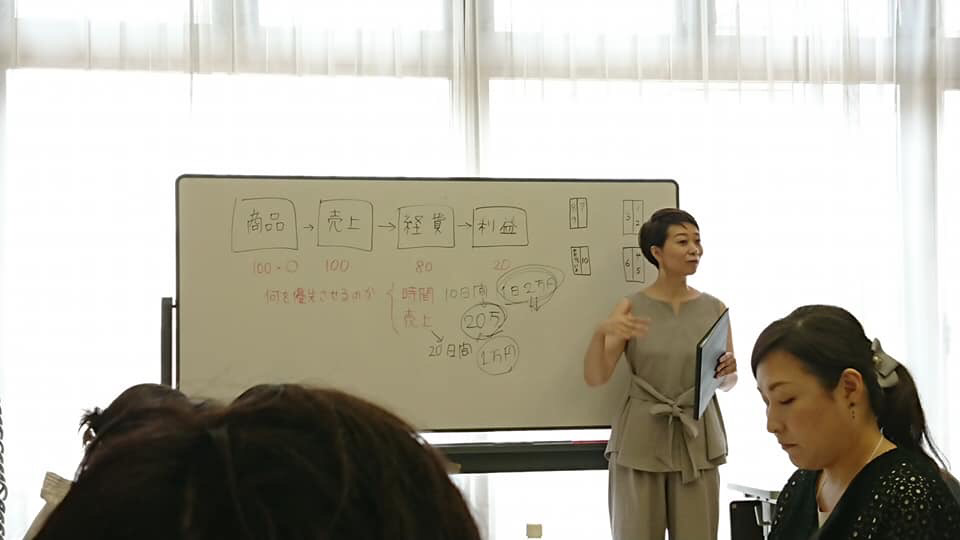 商品 → 売上 → 経費 → 利益
100-0 100 80 20
何を優先させるのか
時間 10日間 1日2万円
売上 20万
20日間 1万円
7
1
3 2
10
4
6 5